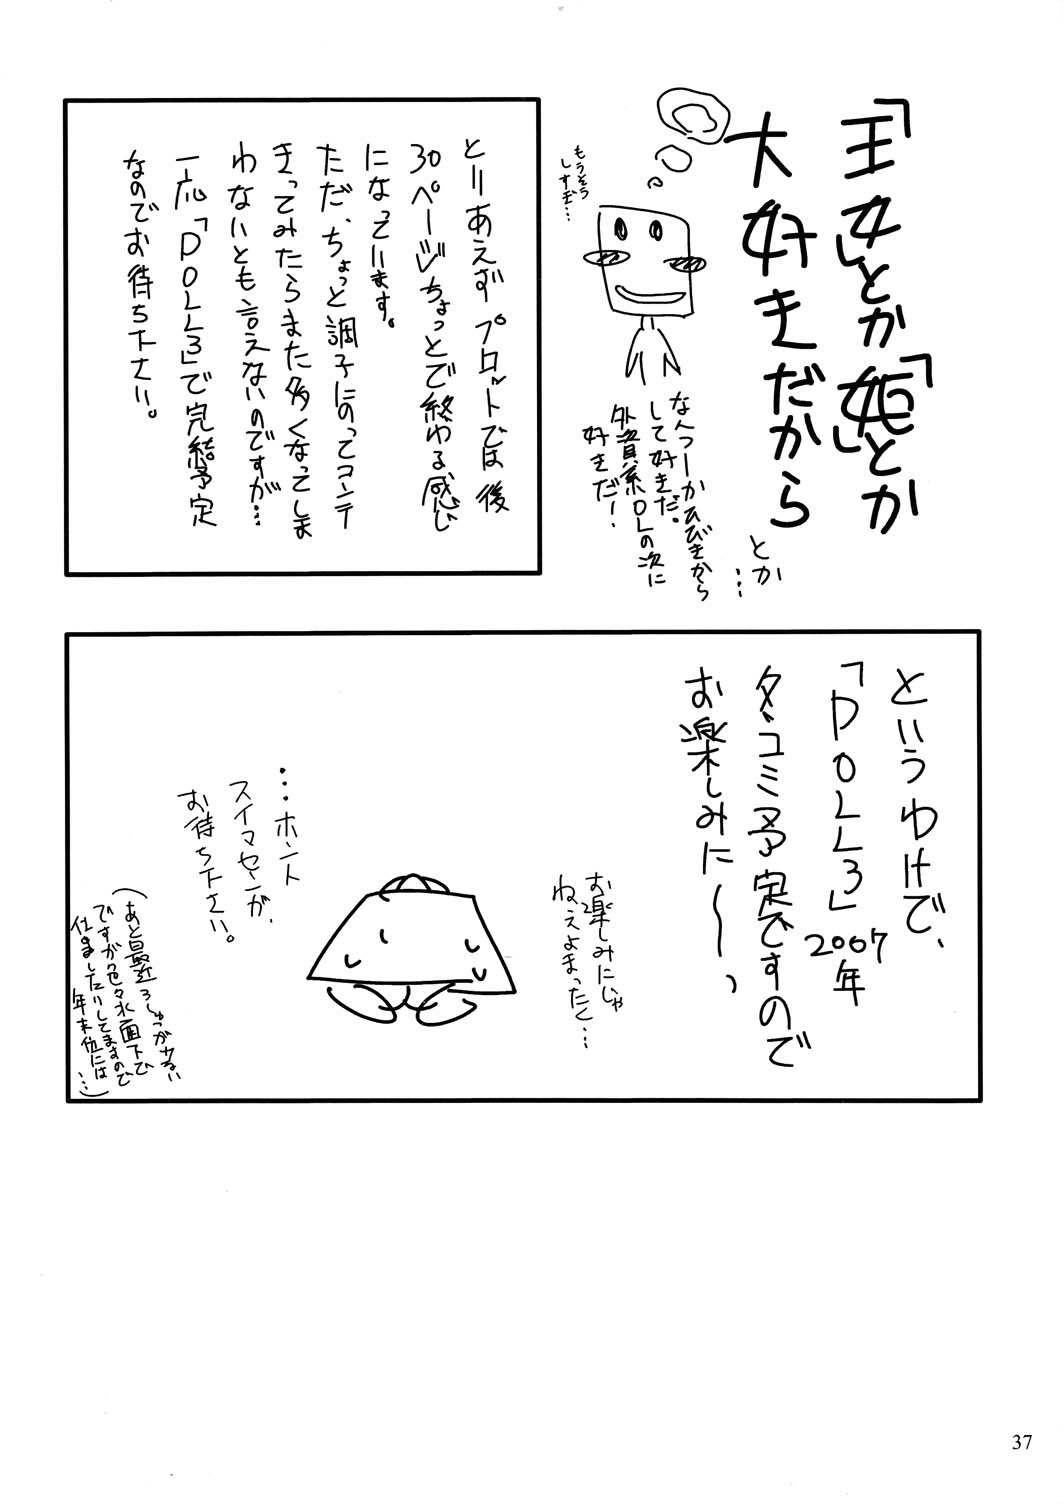 「王女」とか「姫」とか
大好きだから
とか
…
もうそう
しすぎ…
なんつーかひびきから
して好きだ。
外資系OLの次に
好きだー!
とりあえずプロットでは後
30ページちょっとで終わる感じ
になっています。
ただ、ちょっと調子にのってコンテ
きってみたらまた多くなってしま
わないとも言えないのですが…
一応「DOLL3」で完結予定
なのでお待ち下さい。
というわけで、
「DOLL3」2007年
夕コミ予定ですので
お楽しみに〜っ
お楽しみにじゃ
ねえよまったく…
…ホント
スイマセンが、
お待ち下さい。
(あと最近ろしゅつが少ない
ですが色々水面下で
仕ましたりしてますので
年末位には…)
37